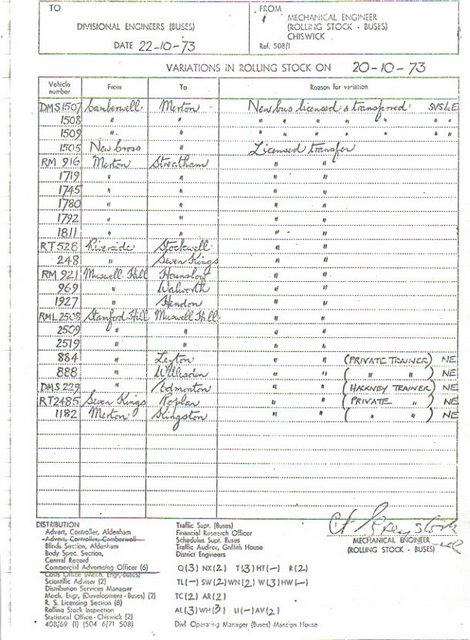 TO
DIVISIONAL ENGINEERS (BUSES)
DATE 22-10-73
FROM
MECHANICAL ENGINEER
(ROLLING STOCK - BUSES)
CHISWICK
Ref. 508/1
VARIATIONS IN ROLLING STOCK ON 20-10-73
Vehicle number From To Reason for variation
DMS1507 Camberwell Merton New bus licensed & transferred SVSLE
1508 " " " " " " " "
1509 " " " " " " " "
1505 New Cross " Licensed transfer
RM 916 Merton Streatham " "
1719 " " " "
1745 " " " "
1780 " " " "
1792 " " " "
1811 " " " "
RT 528 Riverside Stockwell " "
248 " Seven Kings " "
RM 921 Muswell Hill Hounslow " "
969 " Walworth " "
1927 " Hendon " "
RML 2508 Stamford Hill Muswell Hill " "
2509 " " " "
2519 " " " "
884 " Leyton " " (PRIVATE TRAINER) NE
888 " Willesden " " ( " " ) NE
DMS 229 " Edmonton " " (HACKNEY TRAINER) NE
RT2485 Seven Kings Poplar " " (PRIVATE " ) NE
1182 Merton Kingston " " ( " " ) NE
MECHANICAL ENGINEER
(ROLLING STOCK - BUSES)
DISTRIBUTION
Advert. Controller, Aldenham
Advert. Controller, Camberwell
Blinds Section, Aldenham
Body Spec. Section,
Central Record
Commercial Advertising Officer (6)
Costs Office (Mech. Engr. Buses)
Scientific Adviser (2)
Distribution Services Manager
Mech. Engr. (Development - Buses) (2)
R. S. Licensing Section (8)
Rolling Stock Inspection
Statistical Office - Chiswick (2)
408/69 (1) (504 6/71 508)
Traffic Supt. (Buses)
Financial Research Officer
Schedules Supt. Buses
Traffic Auditor, Griffith House
District Engineers
Q(3) NX(2) T(3) HT(-) R(2)
TL(-) SW(2) WN(2) W(3) HW(-)
TC(2) AR(2)
AL(3) WH(3) U(-) AV(2)
Divl Operating Manager (Buses) Mansion House